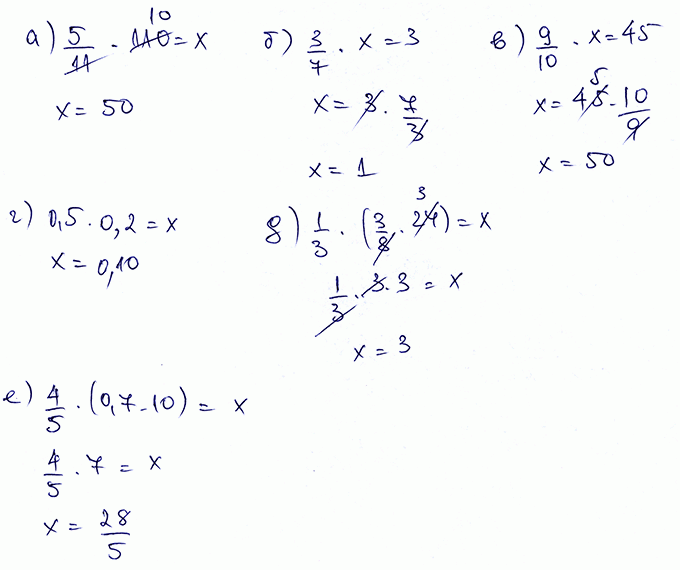 а) 5/11 · 110 = x
10
x = 50
б) 3/7 · x = 3
x = 3 · 7/3
x = 1
в) 9/10 · x = 45
5
x = 45 · 10/9
x = 50
г) 0,5 · 0,2 = x
x = 0,10
д) 1/3 · (3/8 · 24) = x
3
1/3 · 3 · 3 = x
x = 3
е) 4/5 · (0,7 - 10) = x
4/5 · 7 = x
x = 28/5